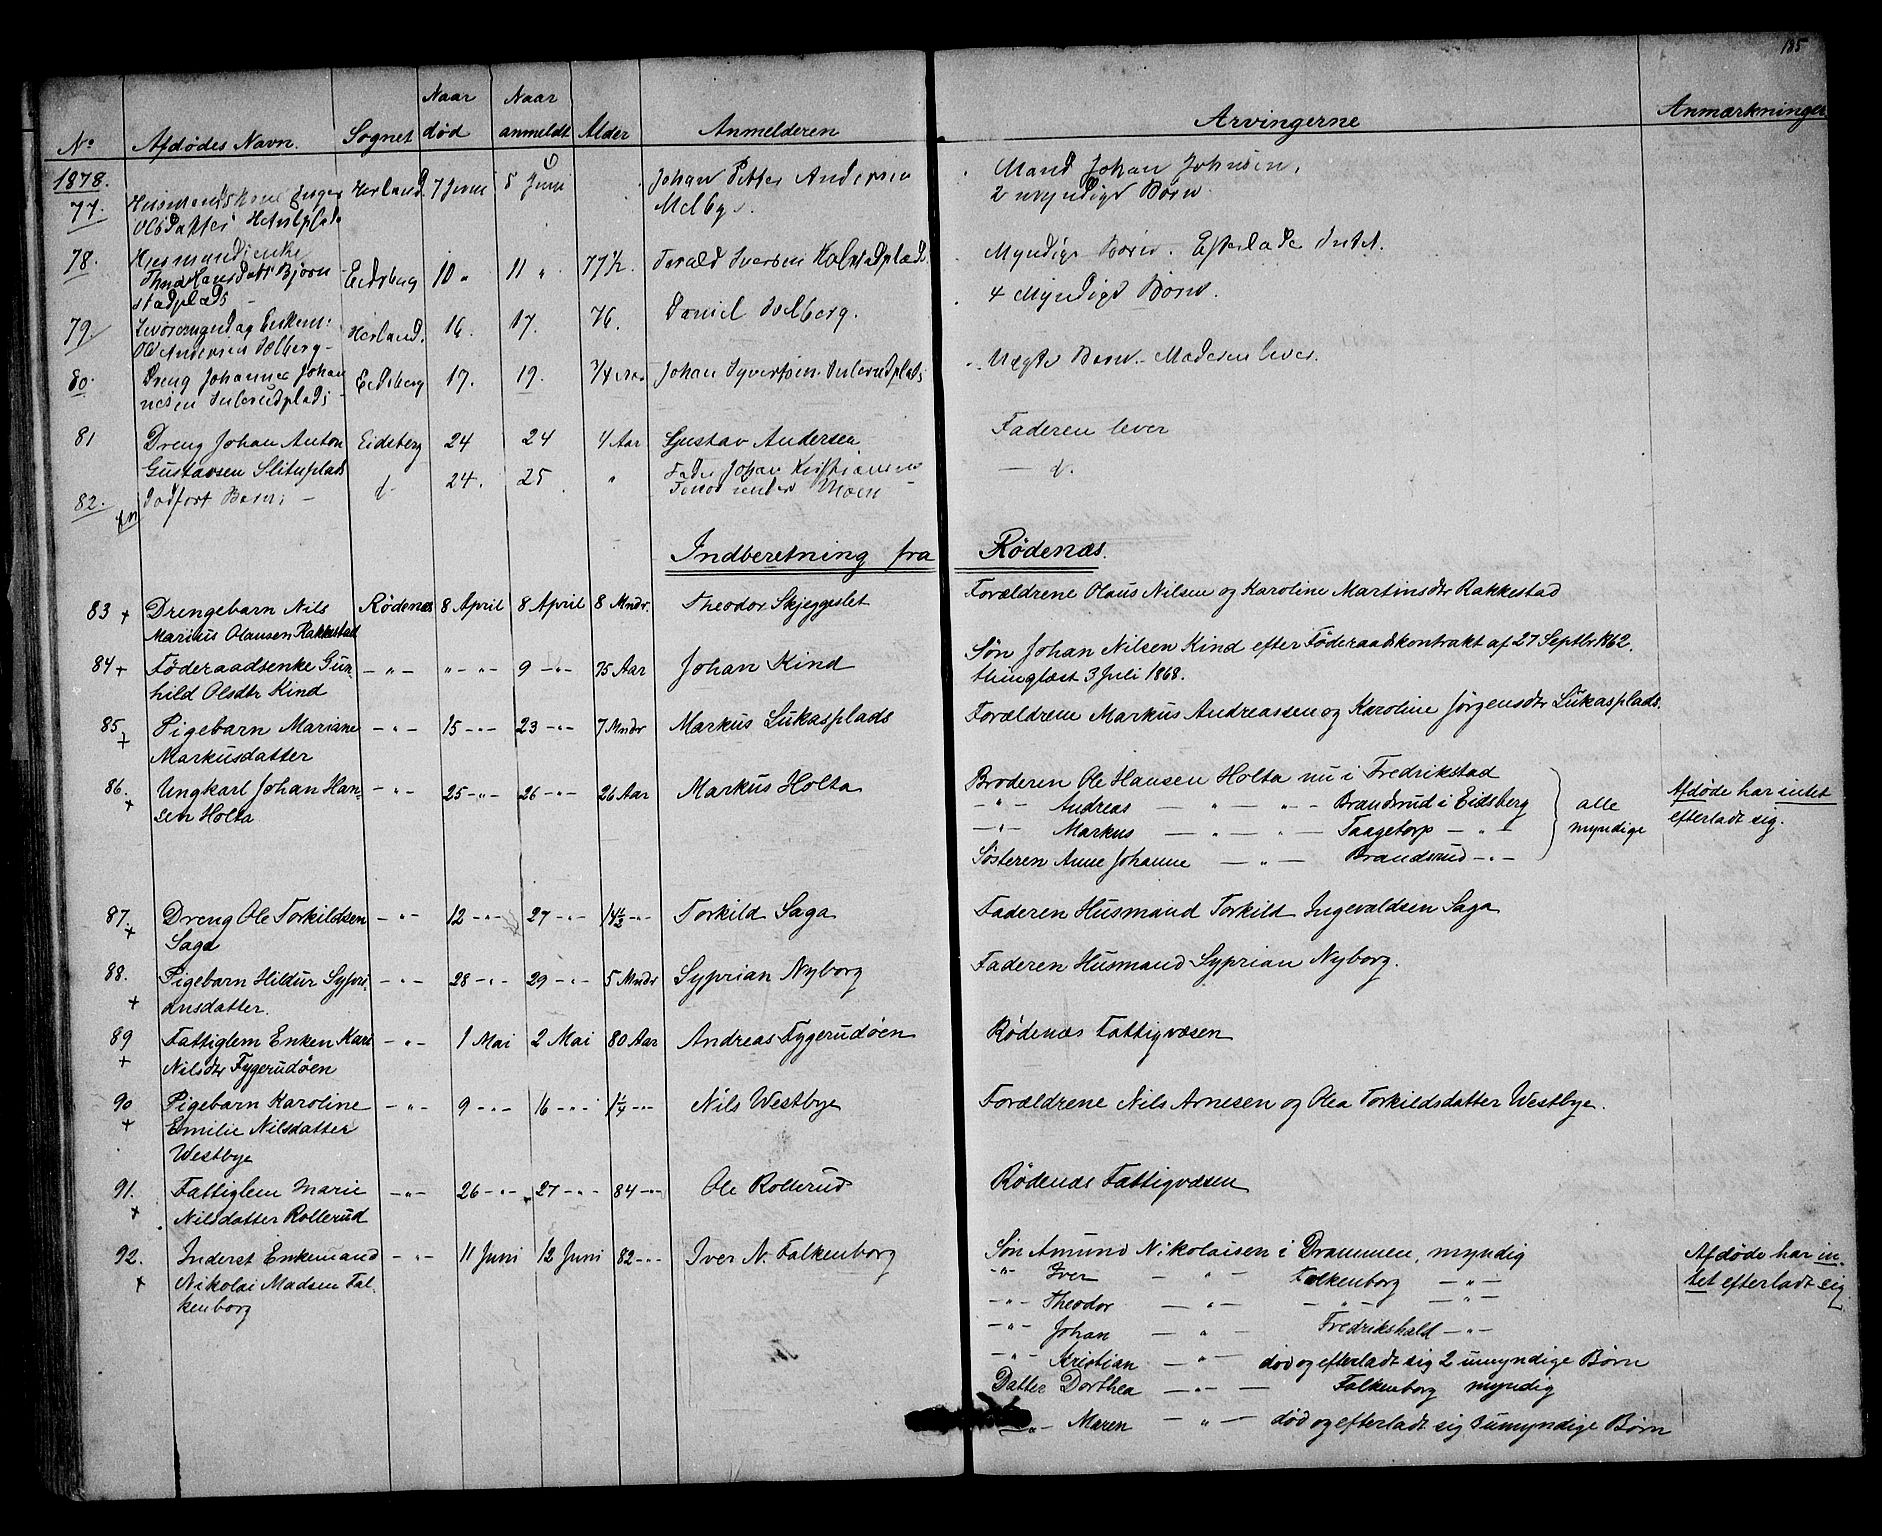 185
No Afdødes Navn. Sognet Naar død Naar anmeldt Alder Anmelderen Arvingerne Anmærkninger
1878.
77. Husmandskone Inger Herland 7 Juni 8 Juni Johan Petter Andersen Mand Johan Johnsen.
Olsdatter Melby 2 umyndige Børn.
78. Husmandsenke
Hansdatt Bjørn Eidsberg 10 " 11 " 77 1/2. Iversen Myndige Børn. Efterlade Intet.
stadplads
79. Ole Andersen Solberg Herland. 16. 17. 76. Daniel Solberg. 4 Myndige Børn.
80. Dreng Johannes Johan Eidsberg 17. 19. 3/4 Johan Syversen Ægte Barn. Moderen lever.
nesen
81 Dreng Johan Anton Eidsberg 24 24 4 Aar Gustav Andersen Faderen lever
Gustavsen Slituplads
82. Dødfødt Barn d. 24. 25 " Fader Johan Kristiansen — d.
Moen
Indberetning fra Rødenæs.
83 + Drengebarn Nils Rødenæs 8 April 8 April 8 Mndr. Theodor Skjeggeslet Forældrene Olaus Nilsen og Karoline Martinsdtr Rakkestad
Marius Olausen Rakkestad
84 + Føderaadsenke Gun- — " — " — " — 9 — " — 75 Aar Johan Kind Søn Johan Nilsen Kind efter Føderaadskontrakt af 27 Septbr 1862.
hild Olsdtr Kind thinglæst 3 Juli 1868.
85 + Pigebarn Mariane — " — 15 — " — 23 — " — 7 Mndr Markus Lukasplads Forældrene Markus Andreassen og Karoline Jørgensdtr Lukasplads.
Markusdatter
86. + Ungkarl Johan Han- — " — 25 — " — 26 — " — 26 Aar Markus Holta Broderen Ole Hansen Holta nu i Fredrikstad
sen Holta
— " — Andreas — " — " — Brandsrud i Eidsberg alle Afdøde har intet
— " — Markus — " — " — Taagetorp — " — myndige efterladt sig.
Søsteren Anne Johanne — " — Brandsrud — " —
87. + Dreng Ole Torkildsen — " — 12 — " — 27 — " — 14 1/2 — " — Torkild Saga Faderen Husmand Torkild Ingevaldsen Saga
Saga
88. + Pigebarn Hildur Sypri- — " — 28 — " — 29 — " — 5 Mndr Syprian Nyborg Faderen Husmand Syprian Nyborg.
ansdatter.
89 + Fattiglem Enken Kari — " — 1 Mai 2 Mai 80 Aar Andreas Fygerudøen Rødenæs Fattigvæsen
Nilsdtr Fygerudøen
90 + Pigebarn Karoline — " — 9 — " — 16 — " — 1 1/4 — " — Nils Westbye Forældrene Nils Arnesen og Olea Torkildsdatter Westbye.
Emilie Nilsdatter
Westbye
91. + Fattiglem Marie — " — 26 — " — 27 — " — 84 — " — Ole Rollerud Rødenæs Fattigvæsen
Nilsdatter Rollerud
92. + Inderst Enkemand — " — 11 Juni 12 Juni 82 — " — Iver N. Falkenborg Søn Amund Nikolaisen i Drammen, myndig Afdøde har in-
Nikolai Madsen Fal- — " — Iver — " — Falkenborg — " — tet efterladt sig
kenborg — " — Theodor — " — — " — — " —
— " — Johan — " — Fredrikshald — " —
— " — Kristian — " — død og efterladt sig 2 umyndige Børn
Datter Dorthea — " — Falkenborg myndig
— " — Maren — " — død og efterladt sig umyndige Børn